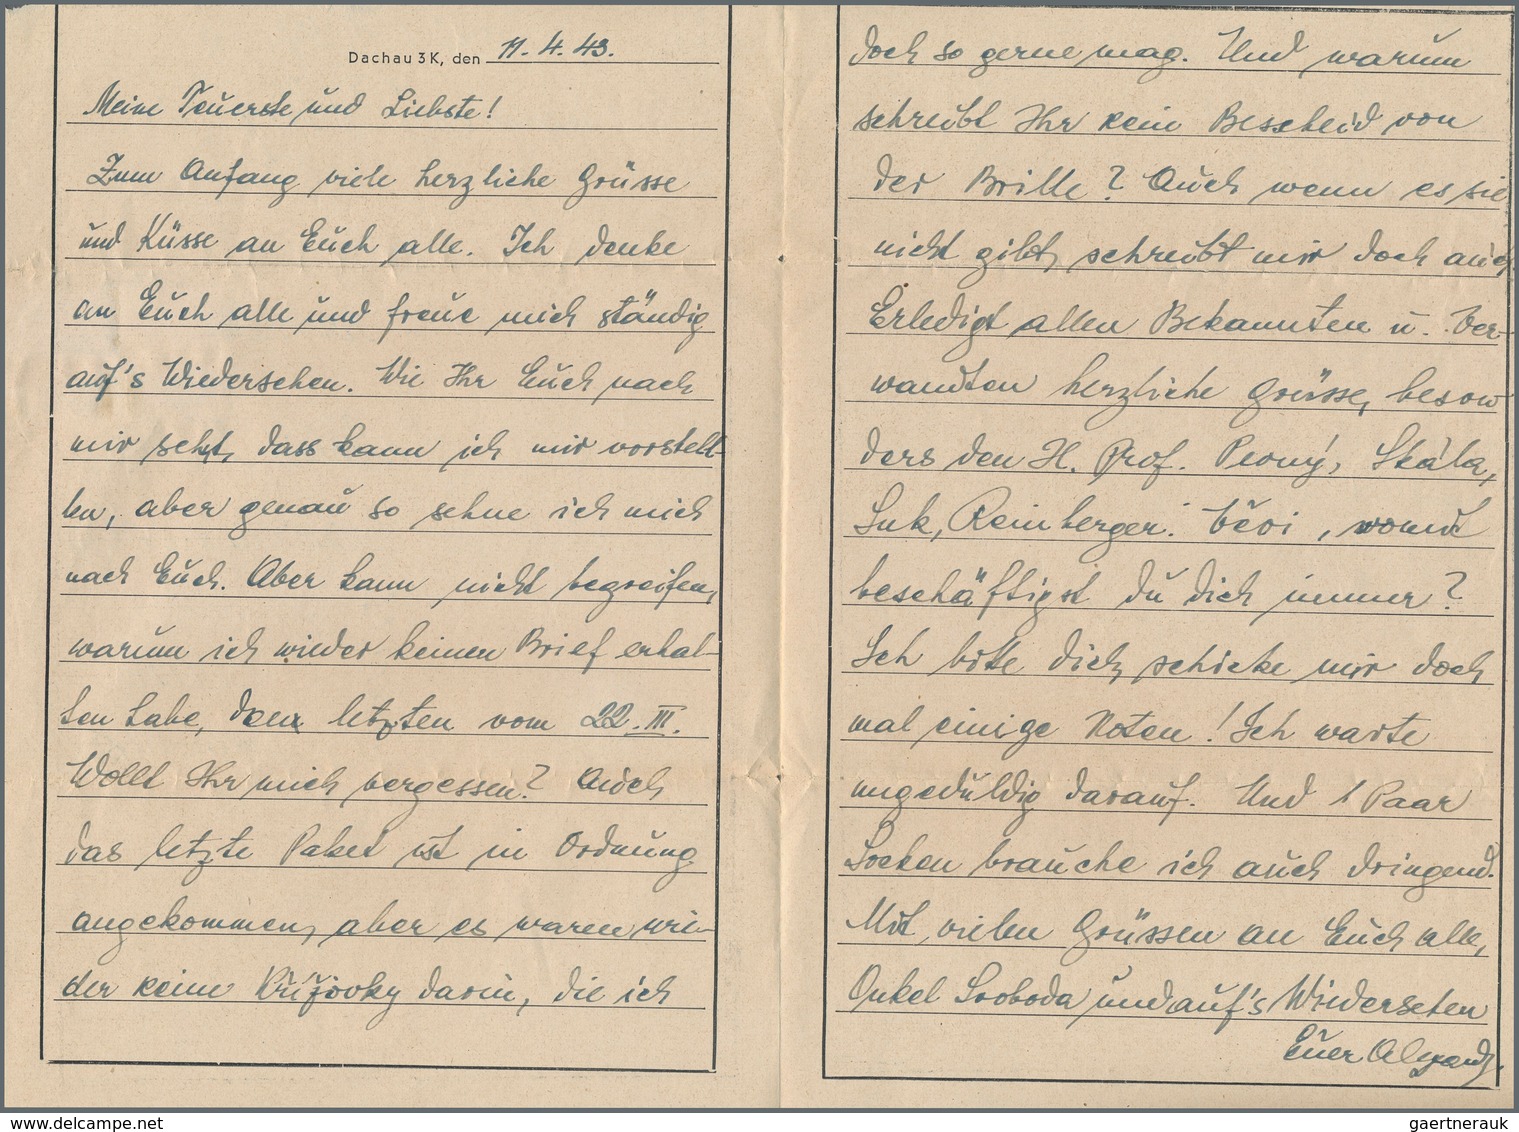 Dachau 3K, den 11.4.43.
Meine Teuerste und Liebste!
Zum Anfang viele herzliche Grüsse
und Küsse an Euch alle. Ich denke
an Euch alle und freue mich ständig
auf's Wiedersehen. Wie Ihr Euch nach
mir seht, dass kann ich mir vorstell-
len, aber genau so sehne ich mich
nach Euch. Aber kann nicht begreifen,
warum ich wieder keinen Brief erhal-
ten habe, den letzten vom 22.III.
Wollt Ihr mich vergessen? Auch
das letzte Paket ist in Ordnung
angekommen, aber es waren wie-
der keine Křížovky darin, die ich
doch so gerne mag. Und warum
schreibt Ihr kein Bescheid von
der Brille? Auch wenn es sie
nicht gibt, schreibt mir doch auch.
Erledigt allen Bekannten u. Ver-
wandten herzliche Grüsse, beson
ders den H. Prof. Skála,
Suk, Reinberger. Věri, womit
beschäftigst du dich immer?
Ich bitte dich, schicke mir doch
mal einige Noten! Ich warte
ungeduldig darauf. Und 1 Paar
Socken brauche ich auch dringend.
Mit vielen Grüssen an Euch alle,
Onkel Svoboda und auf's Wiedersehen
Euer
gaertnerauk